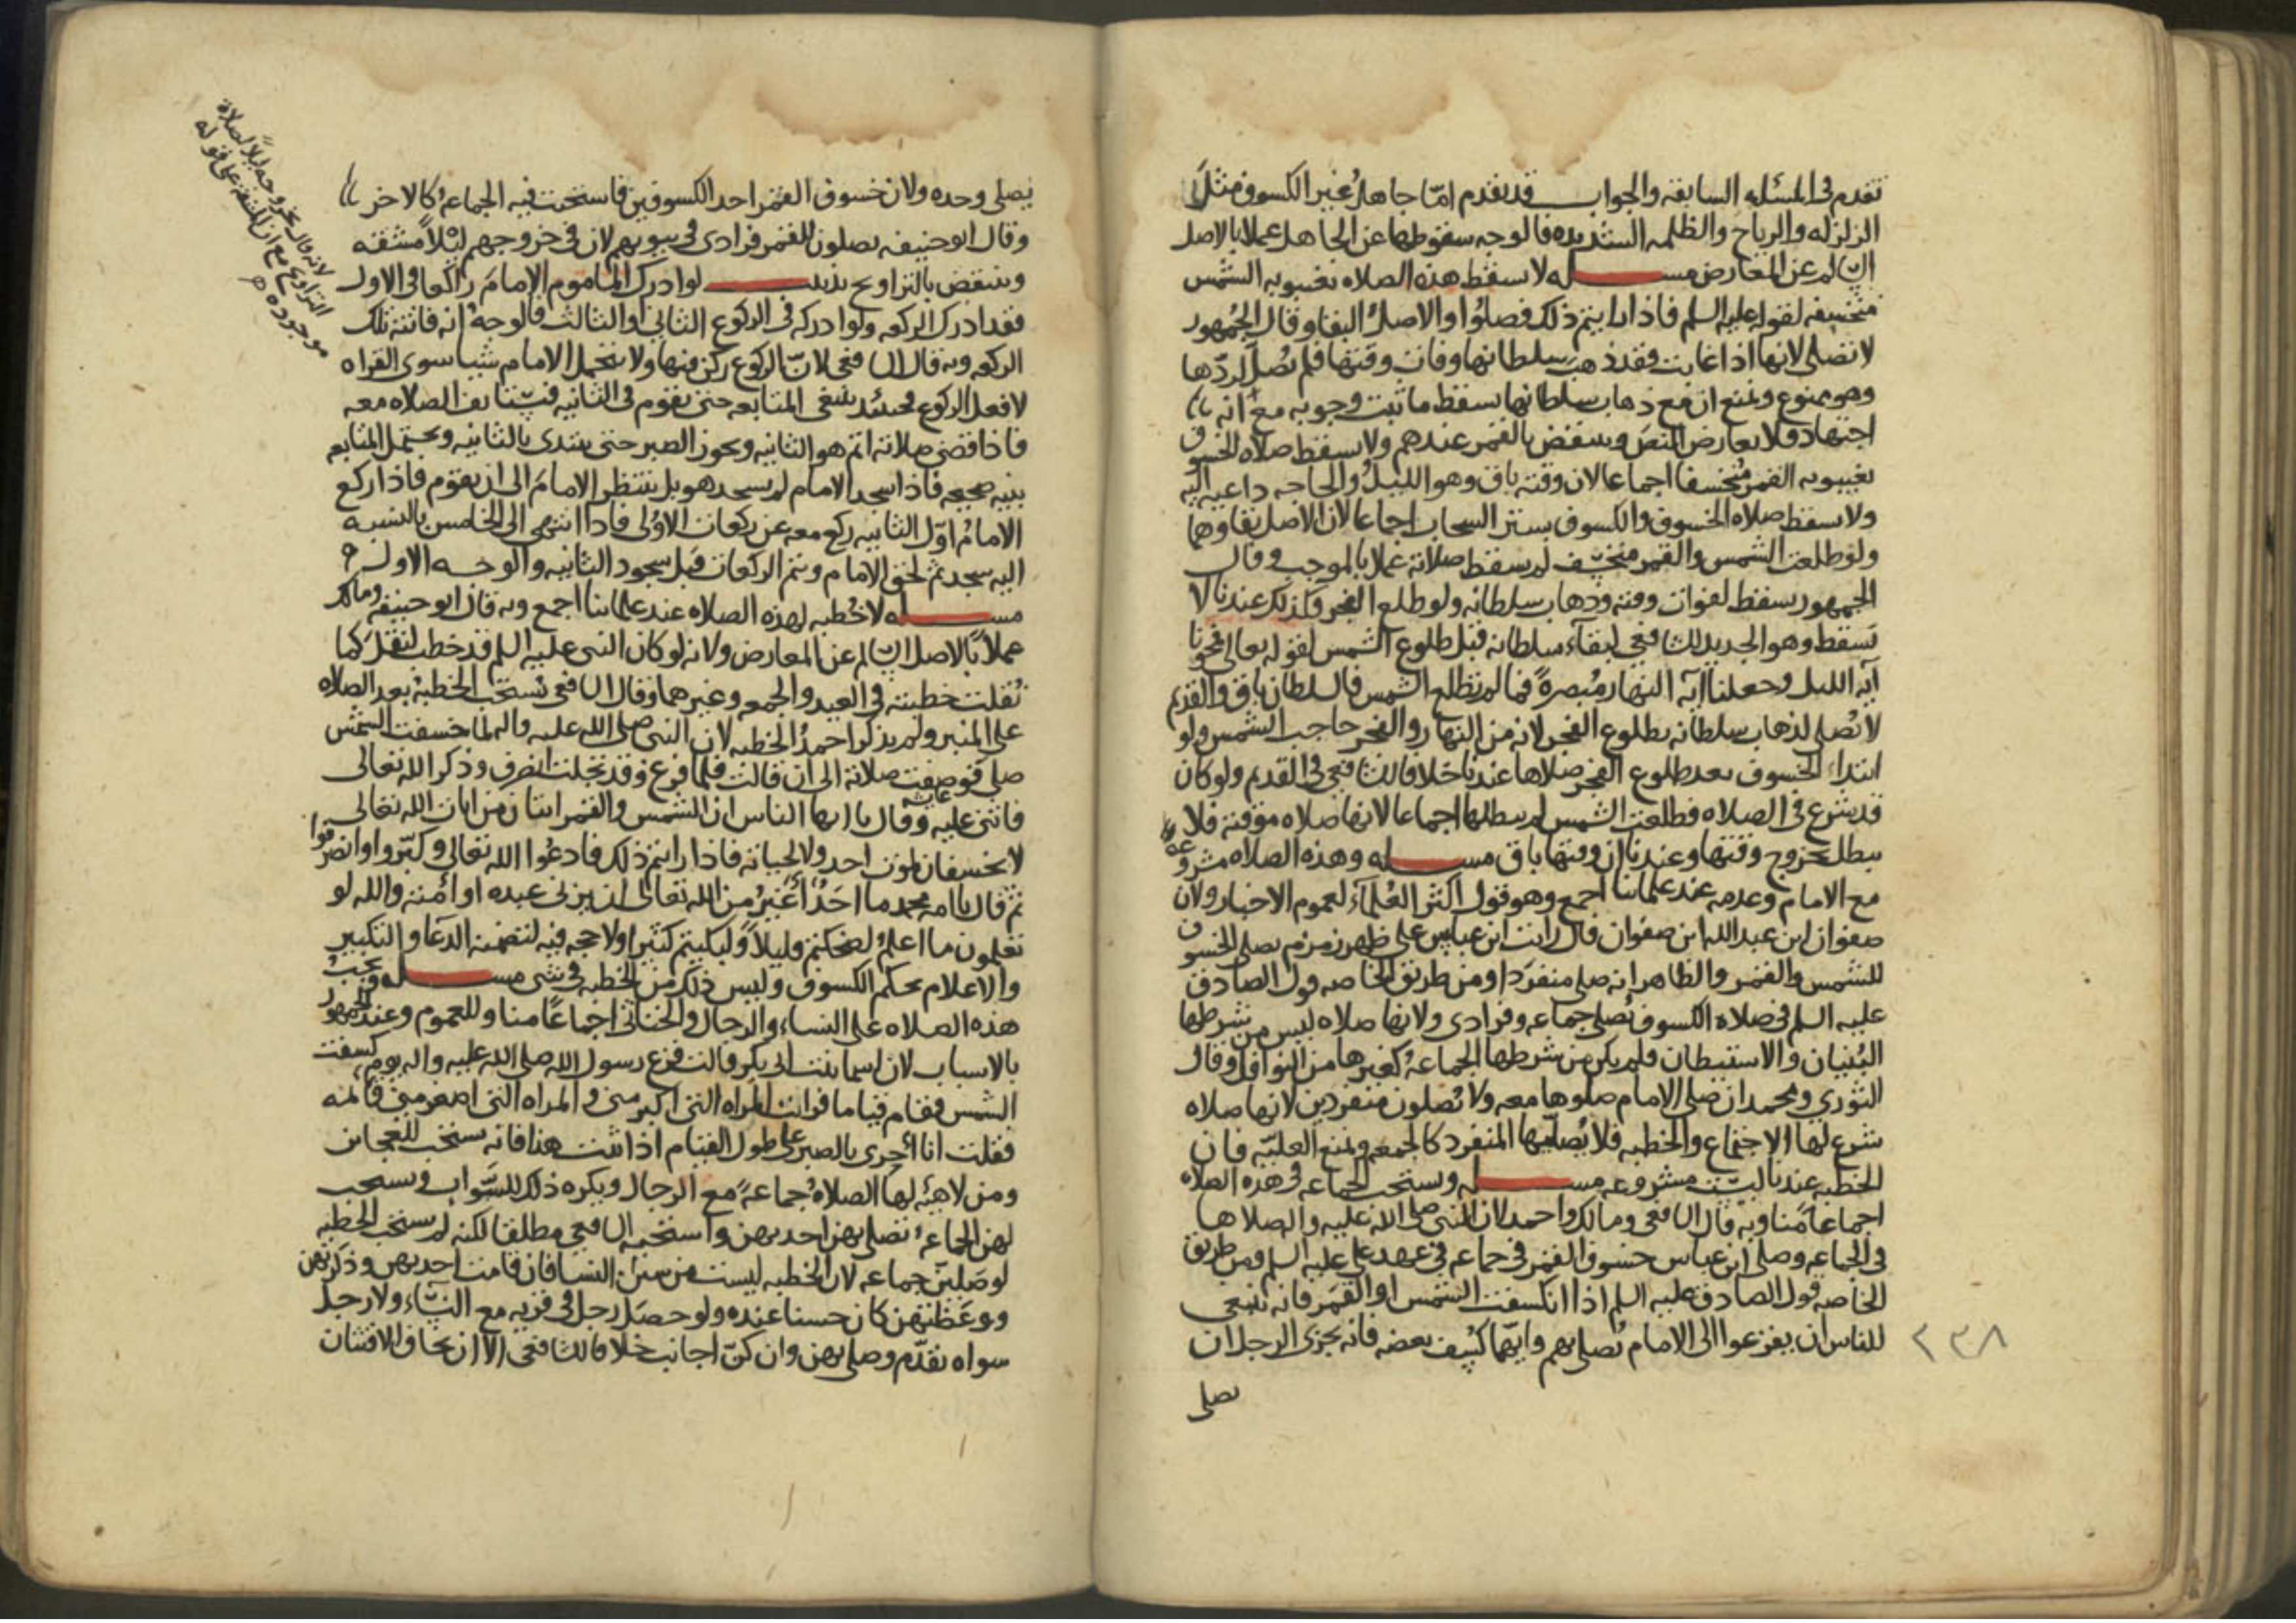 تقدم في المسئله السابقه والجواب قد تقدم امّا جاهل غير الكسوف مثل
الزلزله والرياح والظلمه الشديده فالوجه سقوطها عن الجاهل عملا بالاصل
السالم عن المعارض مسله لا تسقط هذه الصلاه بغيبوبه الشمس
منخسفه لقوله عليه السلم فاذا رايتم ذلك فصلوا والاصل البقا وقال الجمهور
لا تصلى لانها اذا غابت فقد ذهب سلطانها وفات وقتها فلم تصل لردّها
وهو ممنوع ونمنع ان مع ذهاب سلطانها يسقط ما ثبت وجوبه مع انه
اجتهاد فلا يعارض النص وينتقض بالقمر عندهم ولا تسقط صلاه الخسوف
بغيبوبه القمر منخسفا اجماعا لان وقته باق وهو الليل والحاجه داعيه اليه
ولا تسقط صلاه الخسوف والكسوف بستر السحاب اجماعا لان الاصل بقاوهما
ولو طلعت الشمس والقمر منخسف لم تسقط صلاته عملا بالموجب وقال
الجمهور تسقط لفوات وقته وذهاب سلطانه ولو طلع الفجر فكذلك عندنا لا
تسقط وهو الجديد للشافعي لبقاء سلطانه قبل طلوع الشمس لقوله تعالى فمحونا
آية الليل وجعلنا آية النهار مُبصرةً فما لم تطلع الشمس فالسلطان باق والقديم
لا تُصلى لذهاب سلطانه بطلوع الفجر لانه من النهار والفجر حاجب الشمس ولو
ابتداء الخسوف بعد طلوع الفجر صلاها عندنا خلافا للشافعي في القديم ولو كان
قد شرع في الصلاه فطلعت الشمس لم يبطلها اجماعا لانها صلاه موقته فلا
يبطل بخروج وقتها وعندنا ان وقتها باق مسله وهذه الصلاه مشروعه
مع الامام وعدمه عند علماينا اجمع وهو قول اكثر العُلمآء لعموم الاخبار ولان
صفوان ابن عبد الله ابن صفوان قال رايت ابن عباس على ظهر زمزم يصلي الخسوف
للشمس والقمر والظاهر انه صلى منفردا ومن طريق الخاصه قول الصادق
عليه السلم في صلاة الكسوف تُصلى جماعه وفرادى ولانها صلاه ليس من شرطها
البُنيان والاستيطان فلم يكن من شرطها الجماعهُ كغيرها من النوافل وقال
الثوري ومحمد ان صلى الامام صلوها معه ولا تُصلون منفردين لانها صلاه
شرع لها الاجتماع والخطبه فلا يُصلّيها المنفرد كالجمعه ونمنع العليّه فان
الخطبه عندنا ليست مشروعه مسله وتستحب الجماعه في هذه الصلاه
اجماعا منا وبه قال الشافعي ومالك واحمد لان النبي صلى الله عليه واله صلاها
في الجماعه وصلى ابن عباس خسوف القمر في جماعه في عهد علي عليه السلم ومن طريق
الخاصه قول الصادق عليه السلم اذا انكسفت الشمس او القمر فانه ينبغي
للناس ان يفزعوا الى الامام تُصلي بهم وايّهما كُسِف بعضه فانه يجزى الرجل ان
يصلى
٢٣٨
يصلي وحده ولان خسوف القمر احد الكسوفين فاستحبت فيه الجماعهُ كالاخر
وقال ابو حنيفه يصلون للقمر فرادى في بيوتهم لان في خروجهم ليلاً مشقه
وينتقض بالتراويح تذنيب لو ادرك الماموم الامامَ راكعا في الاول
فقد ادرك الركعه ولو ادركه في الركوع الثاني او الثالث فالوجه انه فاتته تلك
الركعه وبه قال الشافعي لان الركوع ركن منها ولا يتحمل الامام شيا سوى القراه
لا فعل الركوع فحينئد ينبغي المتابعه حتى يقوم في الثانيه فيستانف الصلاه معه
فاذا قضى صلاته اتم هو الثانيه ويجوز الصبر حتى يبتدى بالثانيه ويحتمل المتابعه
بنيه صحيحه فاذا سجد الامام لم يسجد هو بل ينتظر الامامَ الى ان يقوم فاذا ركع
الامامُ اوّل الثانيه ركع معه عن ركعات الاوُلى فاذا انتهى الى الخامس بالنسبه
اليه سجد ثم لحق الامام ويتم الركعات قبل سجود الثانيه والوجه الاول
مسله لا خُطبه لهذه الصلاه عند علماينا اجمع وبه قال ابو حنيفه ومالك
عملاً بالاصل السالم عن المعارض ولانه لو كان النبي عليه السلم قد خطب لنقل كما
نُقلت خطبته في العيد والجمعه وغيرهما وقال الشافعي تستحب الخطبهُ بعد الصلاه
على المنبر ولم يذكر احمدُ الخطبه لان النبي صلى الله عليه واله لما خسفت الشمس
صلى فوصفت عايشه صلاته الى ان قالت فلما فرغ وقد تجلت انصرف وذكر الله تعالى
فاثنى عليه وقال يا ايها الناس ان الشمس والقمر ايتان من ايات الله تعالى
لا يخسفان لموت احد ولا لحياته فاذا رايتم ذلك فادعُوا الله تعالى وكبّروا وانصرفوا
ثم قال يا امه محمد ما احَدٌ أغيَرُ من الله تعالى ان يزني عبده او أمته والله لو
تعلمون ما اعلم لضحكتم قليلاً ولبكيتم كثيرا ولا حجه فيه لتضمنه الدعآ والتكبير
والاعلام بحكم الكسوف وليس ذلك من الخطبه في شي مسله وتجبُ
هذه الصلاه على النساء والرجال والخناثى اجماعاً منا وللعموم وعند الجمهور
بالاسباب لان اسما بنت ابي بكر قالت فزع رسول الله صلى الله عليه واله يوم كسفت
الشمس فقام قياما فرايت المراه التي اكبر مني والمراه التي اصغر مني قائمه
فقلت انا أحرى بالصبر على طول القيام اذا ثبت هذا فانه يستحب للعجائز
ومن لا هيئه لها الصلاهُ جماعهً مع الرجال ويكره ذلك للشَّواب ويستحب
لهن الجماعهُ تصلي بهن احديهن واستحبه الشافعي مطلقا لكنه لم يستحب الخطبه
لو صَلين جماعه لان الخطبه ليست من سنن النسا فان قامت احديهن وذكرتهن
ووعَظتهن كان حسنا عنده ولو حصل رجل في قريه مع النساء ولا رجل
سواه تقدّم وصلى بهن وان كنّ اجانب خلافا للشافعي الا ان يخاف الافتتان
لانه قال بخروجه ليلاً لصلاة
التراويح مع ان المشقه على قوله
موجوده